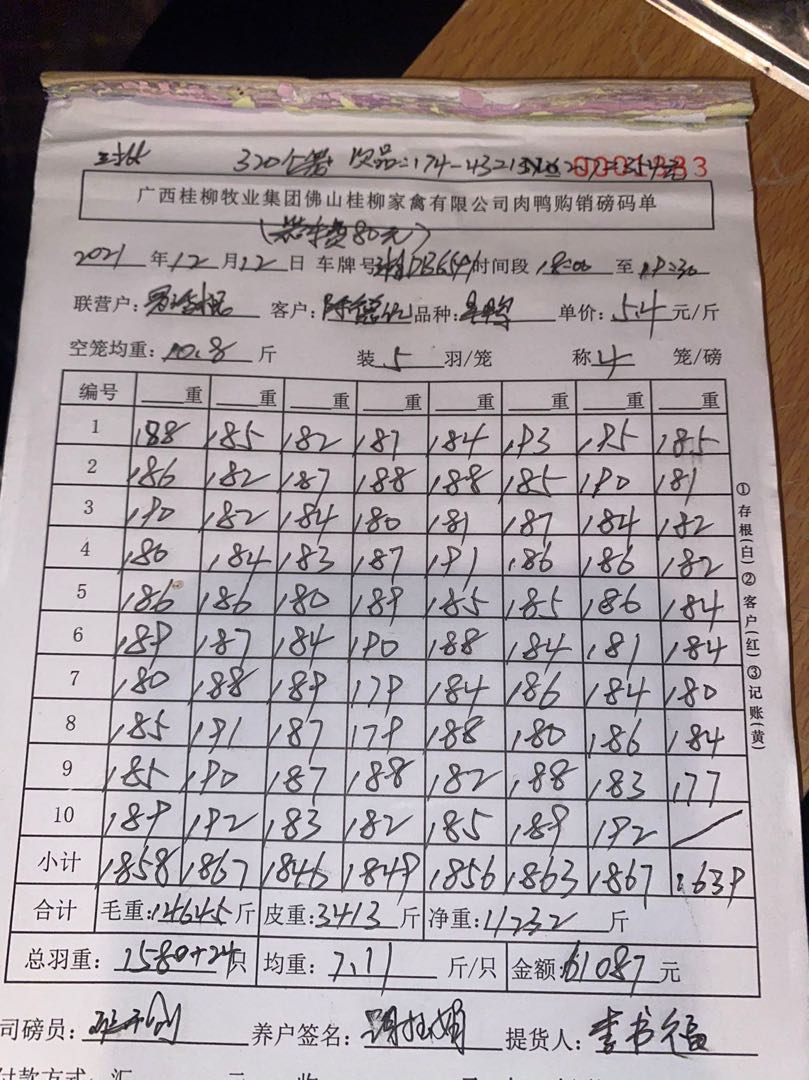 320个笼 次品:174-43
广西桂柳牧业集团佛山桂柳家禽有限公司肉鸭购销磅码单
2021 年 12 月 12 日 车牌号 时间段 18:00 至 19:30
联营户: 客户: 品种: 单价: 5.4 元/斤
空笼均重: 10.8 斤 装 5 羽/笼 称 4 笼/磅
编号 重 重 重 重 重 重 重 重
1 188 185 182 187 184 193 195 185
2 186 182 187 188 188 185 190 181
3 190 182 184 180 181 187 184 182
4 180 184 183 187 191 186 186 182
5 186 186 180 189 185 185 186 184
6 189 187 184 190 188 184 181 184
7 180 188 189 179 184 186 184 180
8 185 191 187 179 188 180 186 184
9 185 190 187 188 182 188 183 177
10 189 192 183 182 185 189 192
小计 1858 1867 1846 1849 1856 1863 1867 1639
合计 毛重: 14645 斤 皮重: 3413 斤 净重: 11232 斤
总羽重: 1580+24 只 均重: 7.11 斤/只 金额: 61087 元
司磅员: 养户签名: 提货人: 李书福
付款方式: 汇 元
①存根(白)②客户(红)③记账(黄)